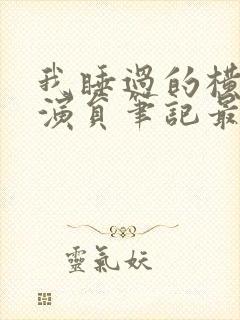 我睡過的橫
演員筆記最
靈氣妖